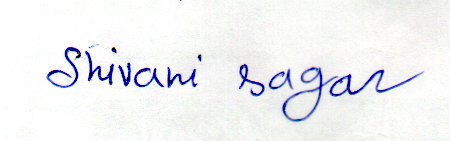 Shivani sagar